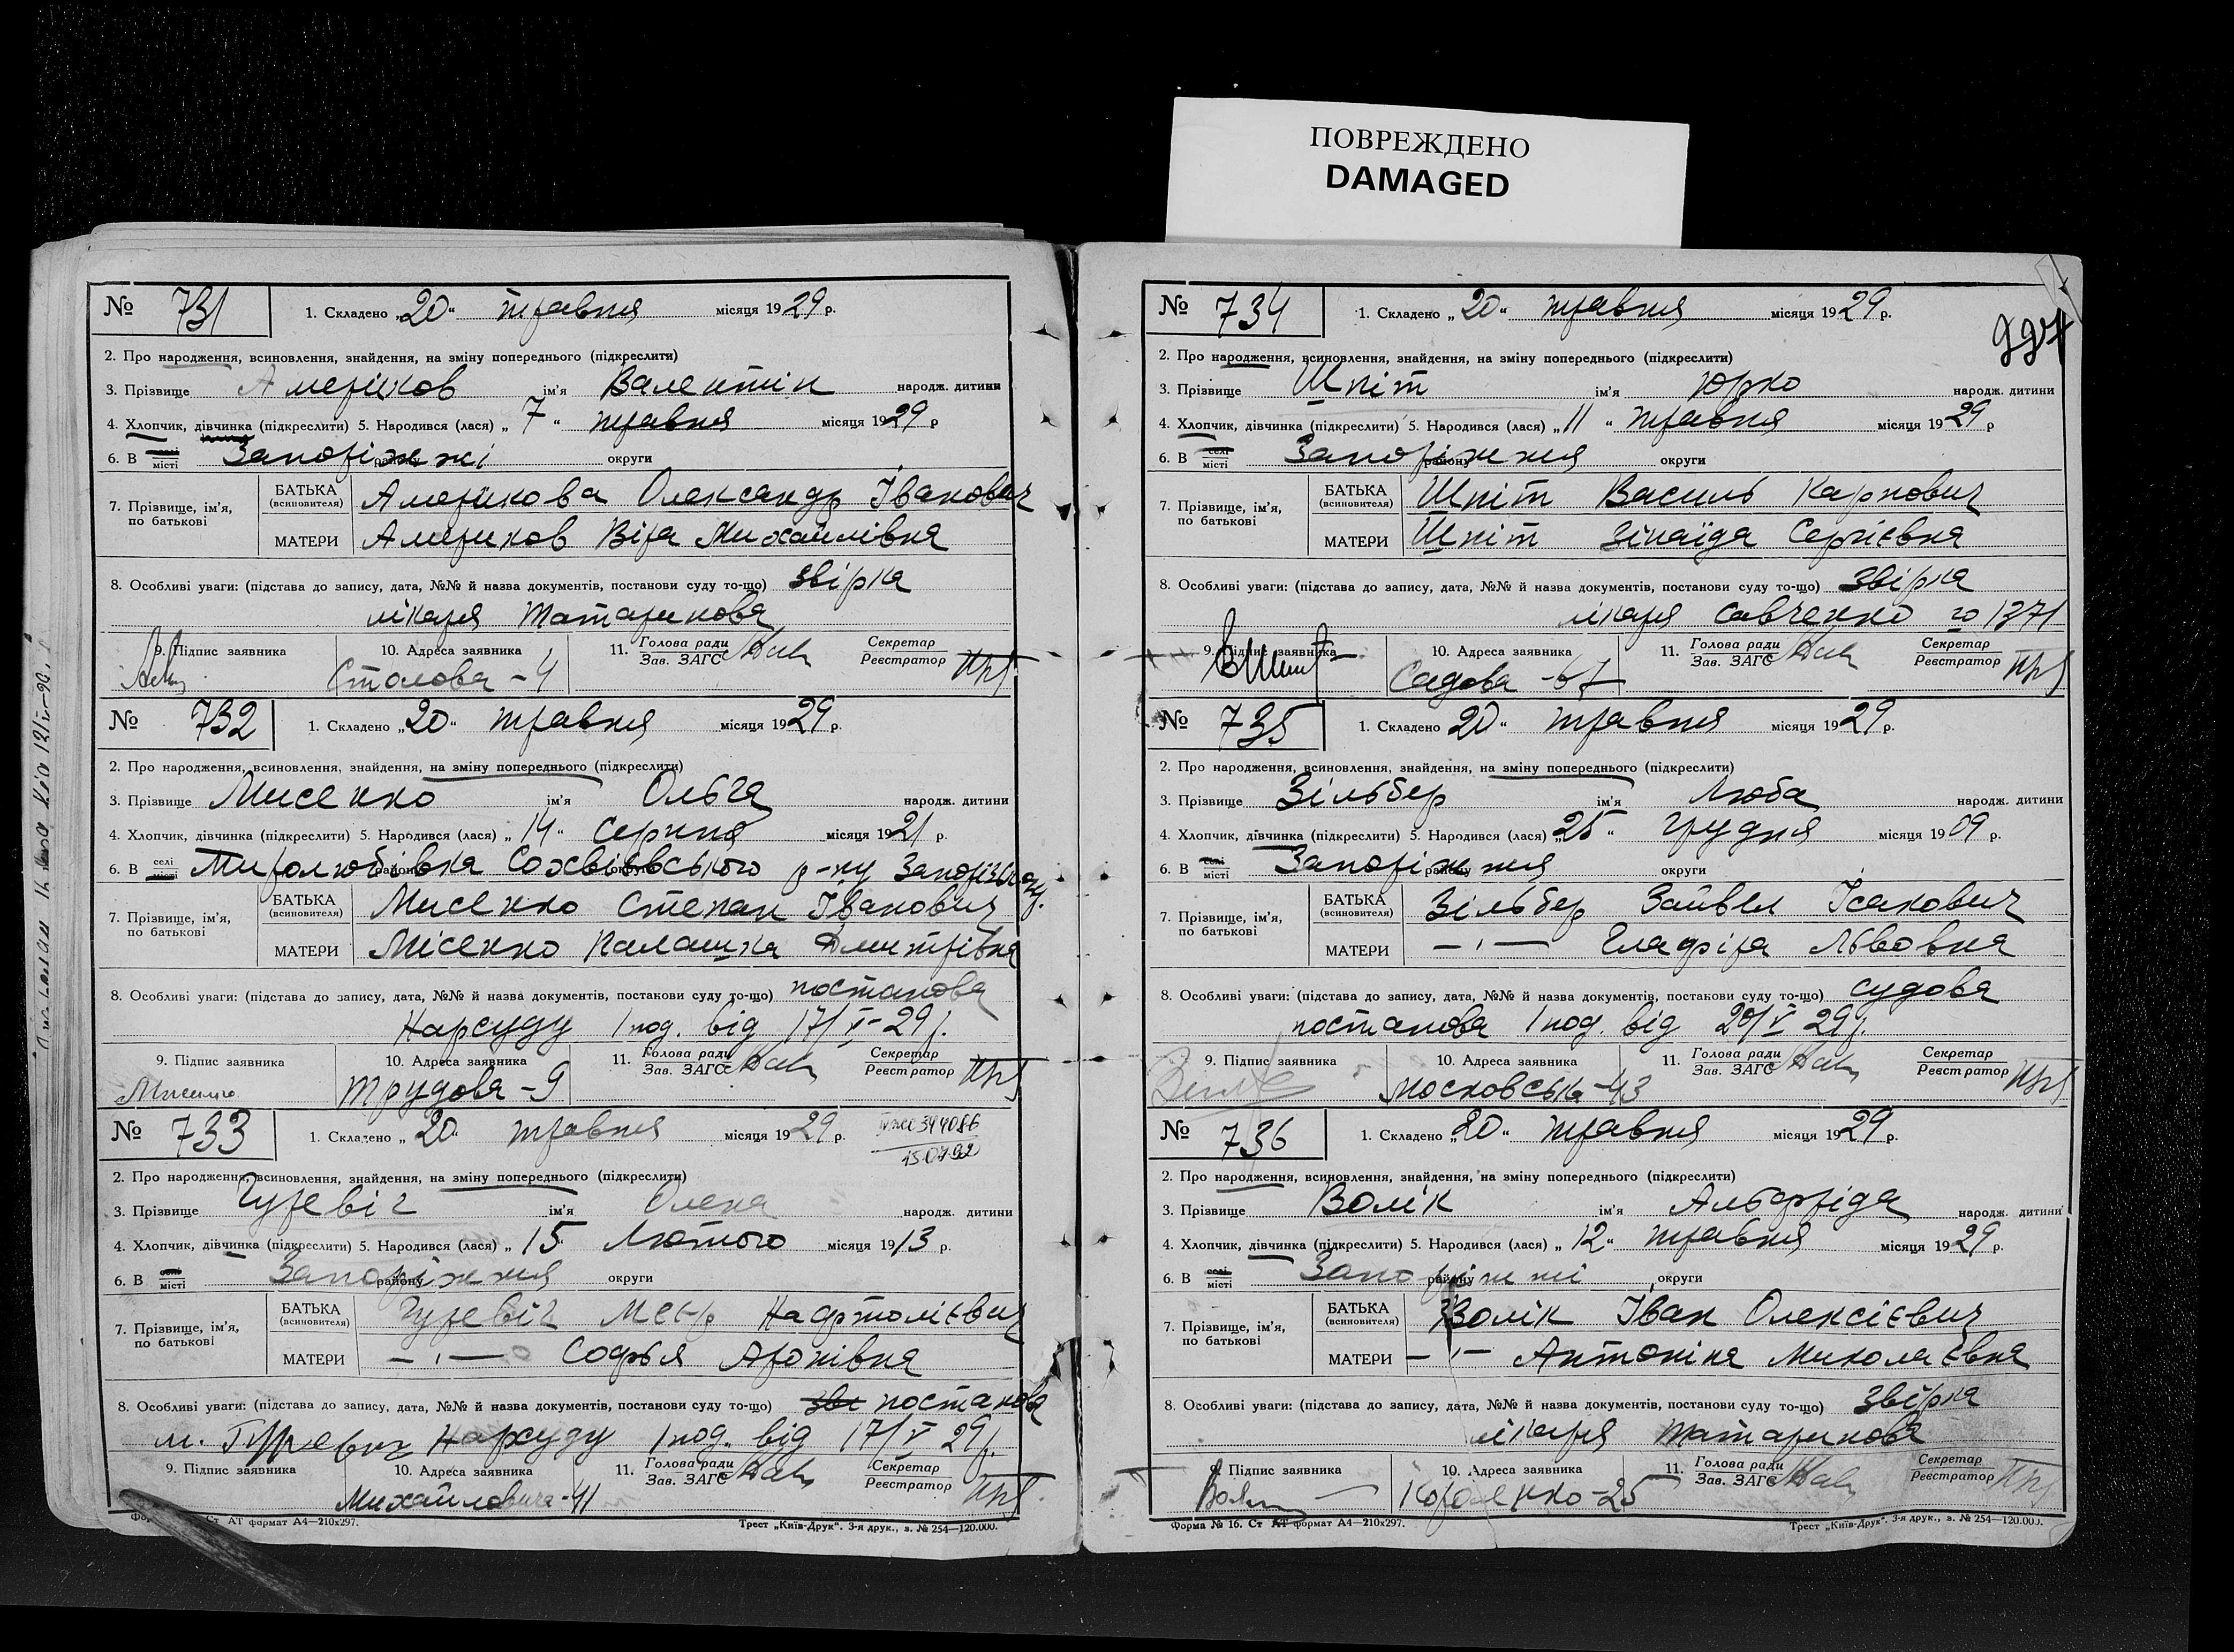 ПОВРЕЖДЕНО
DAMAGED
№ 731 1. Складено „20“ травня місяця 1929 р.
2. Про народження, всиновлення, знайдення, на зміну попереднього (підкреслити)
3. Прізвище Америков ім'я Валентін народж. дитини
4. Хлопчик, дівчинка (підкреслити) 5. Народився (лася) „7“ травня місяця 1929 р
6. В селі місті Запоріжжі району округи
7. Прізвище, ім'я, по батькові БАТЬКА (всиновителя) Америкова Олександр Іванович
МАТЕРИ Америков Віра Михайлівна
8. Особливі уваги: (підстава до запису, дата, №№ й назва документів, постанови суду то-що) звірка
лікаря Татаринова
9. Підпис заявника 10. Адреса заявника Столова - 4 11. Голова ради Зав. ЗАГС Секретар Реєстратор
№ 732 1. Складено „20“ травня місяця 1929 р.
2. Про народження, всиновлення, знайдення, на зміну попереднього (підкреслити)
3. Прізвище Мисенко ім'я Ольга народж. дитини
4. Хлопчик, дівчинка (підкреслити) 5. Народився (лася) „14“ серпня місяця 1921 р.
6. В селі місті Миролюбівка Софіївського р-ну району округи
7. Прізвище, ім'я, по батькові БАТЬКА (всиновителя) Мисенко Степан Іванович
МАТЕРИ Місенко Палашка Дмитрівна
8. Особливі уваги: (підстава до запису, дата, №№ й назва документів, постанови суду то-що) постанова
Нарсуду 1 под. від 17/V-29 р.
9. Підпис заявника Мисенко 10. Адреса заявника Трудова - 9 11. Голова ради Зав. ЗАГС Секретар Реєстратор
№ 733 1. Складено „20“ травня місяця 1929 р. 344086
15.07.92
2. Про народження, всиновлення, знайдення, на зміну попереднього (підкреслити)
3. Прізвище Гуревіч ім'я Олена народж. дитини
4. Хлопчик, дівчинка (підкреслити) 5. Народився (лася) „15“ Лютого місяця 1913 р.
6. В селі місті Запоріжжя району округи
7. Прізвище, ім'я, по батькові БАТЬКА (всиновителя) Гуревіч Меєр Нафтолієвич
МАТЕРИ — ı — Софья Аронівна
8. Особливі уваги: (підстава до запису, дата, №№ й назва документів, постанови суду то-що) постанова
м. Гуревич Нарсуду 1 под. від 17/V 29 р.
9. Підпис заявника 10. Адреса заявника Михайловича - 41 11. Голова ради Зав. ЗАГС Секретар Реєстратор
Ст АТ формат А4—210х297. Трест „Київ-Друк“. 3-я друк., з. № 254—120.000.
994
№ 734 1. Складено „20“ травня місяця 1929 р.
2. Про народження, всиновлення, знайдення, на зміну попереднього (підкреслити)
3. Прізвище Шпіт ім'я Юрко народж. дитини
4. Хлопчик, дівчинка (підкреслити) 5. Народився (лася) „11“ травня місяця 1929 р
6. В селі місті Запоріжжя району округи
7. Прізвище, ім'я, по батькові БАТЬКА (всиновителя) Шпіт Василь Карпович
МАТЕРИ Шпіт Зінаїда Сергієвна
8. Особливі уваги: (підстава до запису, дата, №№ й назва документів, постанови суду то-що) Звірка
лікаря Савченко 1371
9. Підпис заявника 10. Адреса заявника Садова - 67 11. Голова ради Зав. ЗАГС Секретар Реєстратор
№ 735 1. Складено „20“ травня місяця 1929 р.
2. Про народження, всиновлення, знайдення, на зміну попереднього (підкреслити)
3. Прізвище Зільбер ім'я Люба народж. дитини
4. Хлопчик, дівчинка (підкреслити) 5. Народився (лася) „25“ грудня місяця 1909 р.
6. В селі місті Запоріжжя району округи
7. Прізвище, ім'я, по батькові БАТЬКА (всиновителя) Зільбер Зайвел Ісакович
МАТЕРИ — ı — Глафіра Львовна
8. Особливі уваги: (підстава до запису, дата, №№ й назва документів, постанови суду то-що) судова
постанова 1 под. від 20/V 29 р.
9. Підпис заявника 10. Адреса заявника Московська - 43 11. Голова ради Зав. ЗАГС Секретар Реєстратор
№ 736 1. Складено „20“ травня місяця 1929 р.
2. Про народження, всиновлення, знайдення, на зміну попереднього (підкреслити)
3. Прізвище Волік ім'я Альфріда народж. дитини
4. Хлопчик, дівчинка (підкреслити) 5. Народився (лася) „12“ травня місяця 1929 р.
6. В селі місті Запоріжжі району округи
7. Прізвище, ім'я, по батькові БАТЬКА (всиновителя) Волік Іван Олексієвич
МАТЕРИ — ı — Антоніна Миколаєвна
8. Особливі уваги: (підстава до запису, дата, №№ й назва документів, постанови суду то-що) Звірка
лікаря Татаринова
9. Підпис заявника 10. Адреса заявника Короленко - 25 11. Голова ради Зав. ЗАГС Секретар Реєстратор
Форма № 16. Ст АТ формат А4—210х297. Трест „Київ-Друк“. 3-я друк., з. № 254—120.000.